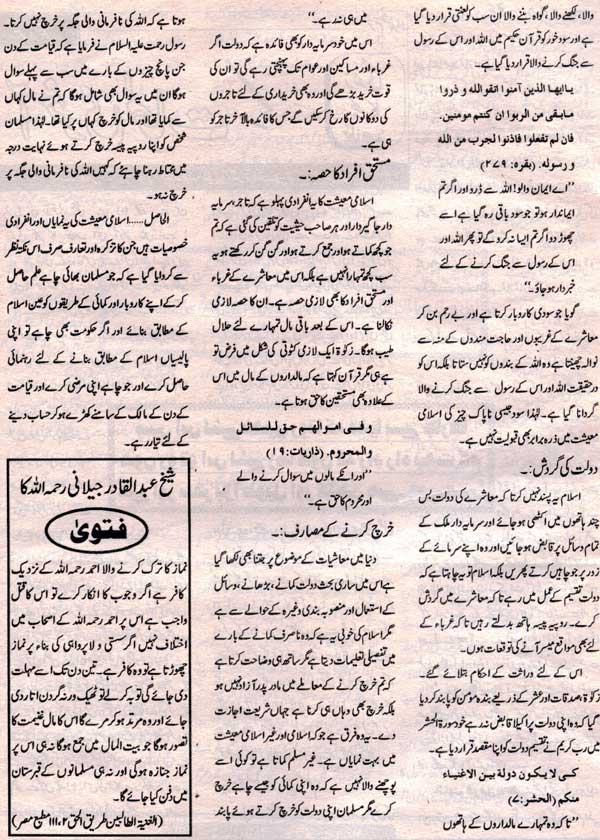 والا، لکھنے والا، گواہ بننے والا ان سب کو لعنتی قرار دیا گیا
ہے اور سود خور کو قرآن حکیم میں اللہ اور اس کے رسول
سے جنگ کرنے والا قرار دیا گیا ہے۔
یا ایها الذین آمنوا اتقو الله و ذروا
مابقی من الربوا ان کنتم مومنین.
فان لم تفعلوا فاذنوا لحرب من الله
و رسوله. (بقره: ۲۷۹)
”اے ایمان والو! اللہ سے ڈرو اور اگر تم
ایماندار ہو تو جو سود باقی رہ گیا ہے اسے
چھوڑ دو اگر تم ایسا نہ کرو گے تو پھر اللہ اور
اس کے رسول سے جنگ کرنے کے لئے
خبردار ہو جاؤ۔“
گویا جو سودی کاروبار کرتا ہے اور بے رحم بن کر
معاشرے کے غریبوں اور حاجت مندوں کے منہ سے
نوالہ چھینتا ہے وہ اللہ کے بندوں کو نہیں ستاتا بلکہ اس کو
در حقیقت اللہ اور اس کے رسول سے جنگ کرنے والا
گردانا گیا ہے۔ لہٰذا سود جیسی ناپاک چیز کی اسلامی
معیشت میں ذرہ برابر بھی قبولیت نہیں ہے۔
دولت کی گردش:۔
اسلام یہ پسند نہیں کرتا کہ معاشرے کی دولت بس
چند ہاتھوں میں اکٹھی ہو جائے اور سرمایہ دار ملک کے
تمام وسائل پر قابض ہو جائیں اور وہ اپنے سرمائے کے
زور پر جو چاہیں کرتے پھریں بلکہ اسلام تو یہ چاہتا ہے کہ
دولت تقسیم کے عمل میں رہے تاکہ معاشرے میں گردش
کرے۔ روپیہ پیسہ ہاتھ بدلتے رہیں تاکہ غرباء کے لئے
بھی مواقع میسر آنے کی توقعات ہوں۔
اس کے لئے وراثت کے احکام بتلائے گئے۔
زکوٰۃ، صدقات اور عشر کے ذریعے بندہ مومن کو پابند کر دیا
گیا کہ وہ اپنی دولت پر اکیلا قابض نہ رہے خود سورۃ الحشر
میں رب کریم نے تقسیم دولت کو اپنا مقصد قرار دیا ہے۔
کی لا یکون دولة بین الاغنیاء
منکم (الحشر:۷)
”تا کہ وہ تمہارے مالداروں کے ہاتھوں
میں ہی نہ رہے۔“
اس میں خود سرمایہ دار کو بھی فائدہ ہے کہ دولت اگر
غرباء اور مساکین اور عوام تک پہنچتی رہے گی تو ان کی
قوت خرید بڑھے گی اور وہ بھی خریداری کے لئے تاجروں
کی دوکانوں کا رخ کر سکیں گے جس کا فائدہ بالآخر تاجر کو
ہی ہے۔
مستحق افراد کا حصہ:۔
اسلامی معیشت کا یہ انفرادی پہلو ہے کہ تاجر، سرمایہ
دار، جاگیردار اور ہر صاحب حیثیت کو تلقین کی گئی ہے کہ تم
جو کچھ کماتے ہو اور جمع کرتے ہو اور گن گن کر رکھتے ہو یہ
سب کچھ تمہارا نہیں ہے بلکہ اس میں معاشرے کے غرباء
اور مستحق افراد کا بھی لازمی حصہ ہے۔ ان کا حصہ لازمی
نکالنا ہے۔ اس کے بعد باقی مال تمہارے لئے حلال
طیب ہوگا۔ زکوٰۃ ایک لازمی کٹوتی کی شکل میں فرض تو
ہے ہی مگر قرآن کہتا ہے کہ مالداروں کے مال میں اس
کے علاوہ بھی مستحقین کا حق ہوتا ہے۔
و فی اموالهم حق للسائل
والمحروم. (ذاریات: ۱۹)
”اور انکے مالوں میں سوال کرنے والے
اور محروم کا حق ہے۔“
خرچ کرنے کے مصارف:۔
دنیا میں معاشیات کے موضوع پر جتنا بھی لکھا گیا
ہے اس میں ساری بحث دولت کمانے، بڑھانے، وسائل
کے استعمال اور منصوبہ بندی وغیرہ کے حوالے سے ہے
مگر اسلام کی خوبی یہ ہے کہ وہ نا صرف کمانے کے بارے
میں تفصیلی تعلیمات دیتا ہے مگر ساتھ ہی وضاحت کرتا ہے
کہ تم خرچ کرنے کے معاملے میں مادر پدر آزاد نہیں ہو
بلکہ خرچ بھی وہاں ہی کرنا ہے جہاں شریعت اجازت
دے۔ یہ وہ فرق ہے جو کہ اسلامی اور غیر اسلامی معیشت
میں بہت نمایاں ہے۔ غیر مسلم کماتا ہے تو کوئی اسے
پوچھنے والا نہیں ہے کہ وہ اپنی کمائی کو جیسے چاہے خرچ
کرے مگر مسلمان اپنی دولت کو خرچ کرتے ہوئے پابند
ہوتا ہے کہ اللہ کی نافرمانی والی جگہ پر خرچ نہیں کرنا۔
رسول رحمت علیہ السلام نے فرمایا ہے کہ قیامت کے دن
جن پانچ چیزوں کے بارے میں سب سے پہلے سوال
ہوگا ان میں یہ سوال بھی شامل ہوگا کہ تم نے مال کہاں
سے کمایا تھا اور مال کو خرچ کہاں پر کیا تھا۔ لہٰذا مسلمان
شخص کو اپنا روپیہ پیسہ خرچ کرتے ہوئے نہایت درجہ
محتاط رہنا چاہئے کہ کہیں اللہ کی نافرمانی والی جگہ پر
خرچ نہ ہو۔
الحاصل ...... اسلامی معیشت کی یہ نمایاں اور انفرادی
خصوصیات ہیں جن کا تذکرہ اور تعارف صرف اس نکتہ نظر
سے کروایا گیا ہے کہ جو مسلمان بھائی چاہے علم حاصل
کر کے اپنے کاروبار اور کمائی کے طریقوں کو عین اسلام
کے مطابق بنائے اور اگر حکومت بھی چاہے تو اپنی
پالیسیاں اسلام کے مطابق بنانے کے لئے رہنمائی
حاصل کرے اور جو چاہے اپنی مرضی کرے اور قیامت
کے دن کے مالک کے سامنے کھڑے ہو کر حساب دینے
کے لئے تیار رہے۔
شیخ عبدالقادر جیلانی رحمہ اللہ کا
فتویٰ
نماز کا ترک کرنے والا احمد رحمہ اللہ کے نزدیک
کافر ہے اگر وجوب کا انکار کرے تو اس کا قتل
واجب ہے اس پر احمد رحمہ اللہ کے اصحاب میں
اختلاف نہیں اگر سستی و لاپرواہی کی بناء پر نماز
چھوڑتا ہے تو وہ کافر ہے۔ تین دن تک اسے مہلت
دی جائے گی توبہ کر لے تو ٹھیک ورنہ گردن اتار دی
جائے اور وہ مرتد ہو کر مرے گا اس کا مال غنیمت کا
تصور ہوگا جو بیت المال میں جمع ہوگا نہ ہی اس پر
نماز جنازہ ہوگی اور نہ ہی مسلمانوں کے قبرستان
میں دفن کیا جائے گا۔
(الغنیۃ الطالبین طریق الحق ۱۱۱،۲ مطبع مصر)